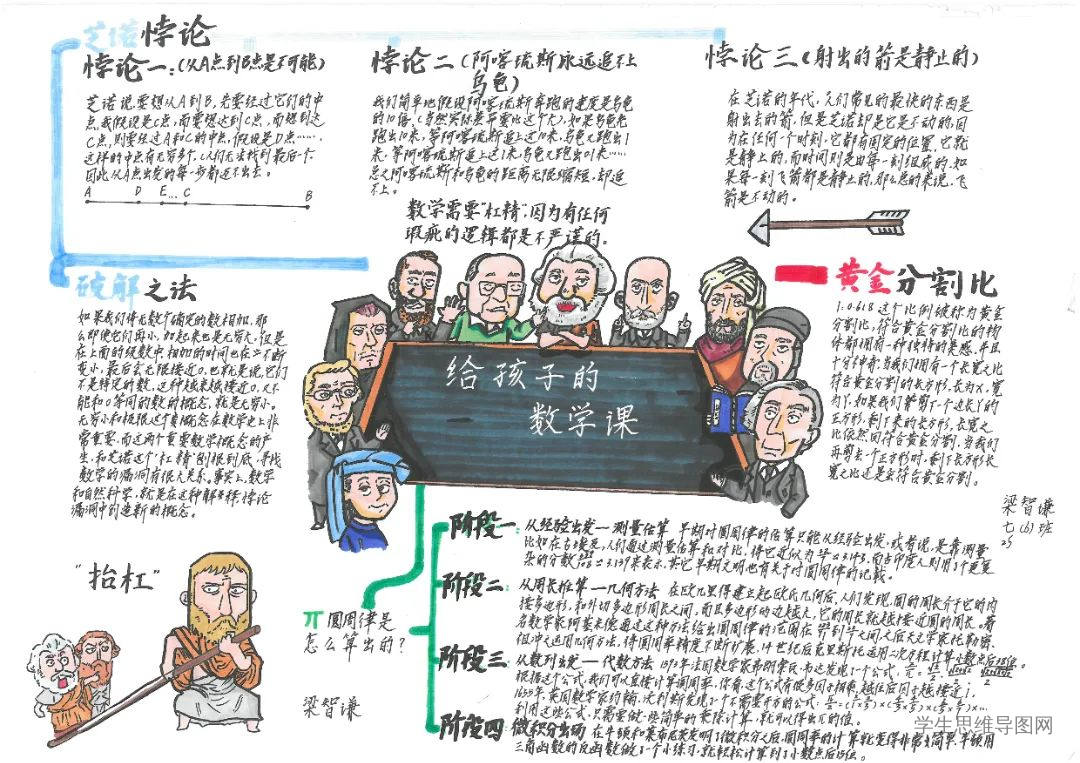 芝诺悖论
悖论一：(从A点到B点是不可能)
芝诺说要想从A到B，先要经过它们的中
点，我假设是C点，而要想达到C点，而想到达
C点，则要经过A和C的中点，假设是D点……，
这样的中点有无穷多个，人们无法找到最后个
因此从A点出发的每一步都迈不出去。
A D E... C B
悖论二(阿喀琉斯永远追不上
乌龟)
我们简单地假设阿喀琉斯奔跑的速度是乌龟
的10倍，(当然实际差平要比这个大)，如果乌龟先
跑出10米，等阿喀琉斯追上这10米，乌龟又跑出1
米，等阿喀琉斯追上这1米，乌龟又跑出0.1米……
总之阿喀琉斯和乌龟的距离无限缩短，却追
不上。
悖论三(射出的箭是静止的)
在芝诺的年代，人们常见的最快的东西是
射出去的箭，但是芝诺却是它是不动的，因
为在任何一个时刻，它都有固定的位置，它就
是静止的，而时间则是由每一刻组成的，如
果每一刻飞箭都是静止的，那么总的来说，飞
箭是不动的。
数学需要“杠精”，因为有任何
瑕疵的逻辑都是不严谨的。
破解之法
如果我们将无数个确定的数相加，那
么即使它们再小，加起来也是无穷大，但是
在上面的级数中，相加的时间也在不断
变小，最后会无限接近0，也就是说，它们
不是特定的数，这种越来越接近0，又不
能和0等同的数的概念，就是无穷小。
无穷小和极限这个概念在数学史上非
常重要，而这两个重要数学概念的产
生，和芝诺这个“杠精”刨根到底，寻找
数学的漏洞有很大关系。事实上，数学
和自然科学，就是在这种解释悖论
漏洞中创造新的概念。
黄金分割比
1:0.618这个比例被称为黄金
分割比，符合黄金分割比的构
体都拥有一种独特的美感，并且
十分神奇：当我们拥有一个长宽之比
符合黄金分割的长方形，长为X，宽
为Y，如果我们剪剪了一个边长Y的
正方形，剩下来的长方形，长宽之
比依然回符合黄金分割，当我们
再剪去一个正方形时，剩下长方形长
宽之比还是会符合黄金分割。
给孩子的
数学课
梁智谦
七(6)班
25
“抬杠”
π圆周律是
怎么算出的？
梁智谦
阶段一：从经验出发—测量估算 早期对圆周律的估算只能从经验出发，或者说，是靠测量
比如在古埃及，人们通过测量估算和对比，得它近似为
来表示，其它早期文明也有关于对圆周律的记载。
阶段二：从周长推算—几何方法 在欧几里得建立起欧氏几何后，人们发现，圆的周长介于它的内
接多边形，和外切多边形周长之间，而且多边形的边越多，它的周长就越接近圆的周长。著
名数学家阿基米德通过这种方法给出圆周律的范围在
组冲之运用几何方法，得圆周率精度不断扩展，14世纪后
阶段三：从数列出发—代数方法 1579年法国数学家弗朗索瓦·韦达发现一个公式，
根据这个公式，我们可以直接计算圆周率，你看，这个公式有很多因子相乘，越往后因子越接近1，
1655年，英国数学家约翰·沃利斯发现了个不需要开方的公式：
利用这些公式，只需要做一些简单的乘除计算，就可以得出π的值。
阶段四：微积分出场 在牛顿和莱布尼茨发明了微积分之后，圆周率的计算就变得非常简单，牛顿用
三角函数的反函数做了个小练习，就轻松计算到了小数点后15位。
学生思维导图网